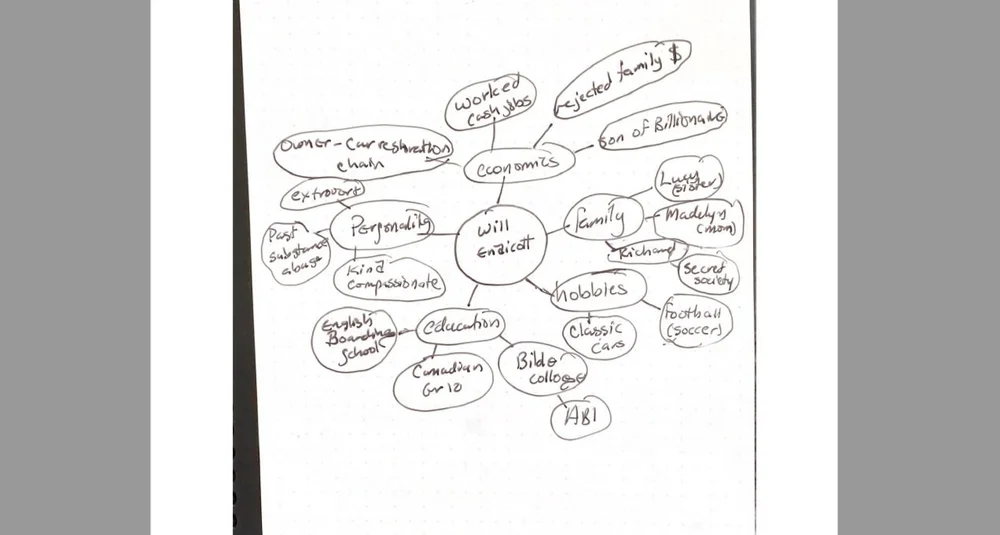 rejected family $
worked
cash jobs
son of Billionaire
Owner - Car restoration
chain
economics
Lucy
(sister)
extrovert
Family
Madelyn
(mom)
Personality
Will
Endicott
Past
substance
abuse
Richard
Kind
Compassionate
Secret
society
hobbies
Football
(soccer)
English
Boarding
School
education
Classic
cars
Canadian
Gr 12
Bible
college
ABI